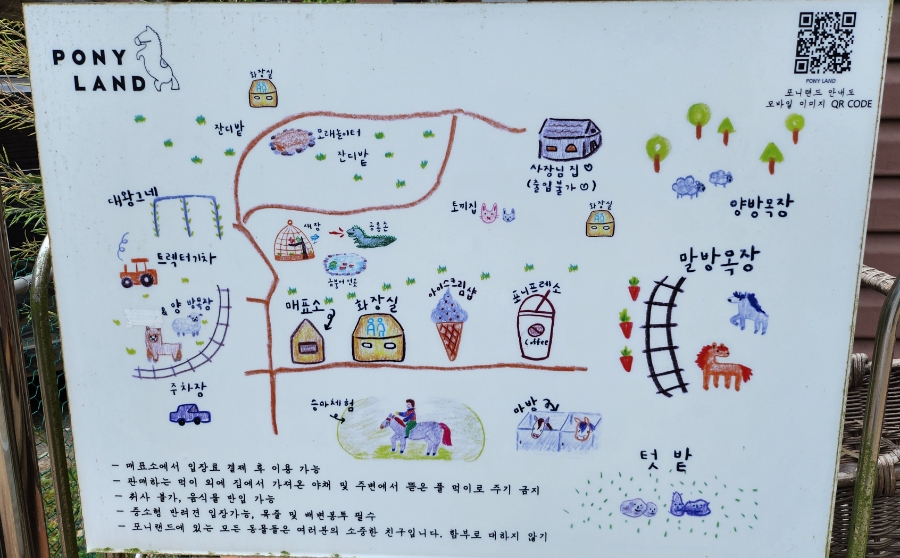 PONY
LAND
PONY LAND
포니랜드 안내도
모바일 이미지 QR CODE
화장실
잔디밭
모래놀이터
잔디밭
사장님 집
(출입불가)
대왕그네
토끼집
화장실
양방목장
새장
공룡존
트랙터기차
말방목장
& 양 방목장
매표소
화장실
아이스크림샵
포니프레소
Coffee
주차장
승마체험
마방
텃밭
- 매표소에서 입장료 결제 후 이용 가능
- 판매하는 먹이 외에 집에서 가져온 야채 및 주변에서 뜯은 풀 먹이로 주기 금지
- 취사 불가, 음식물 반입 가능
- 중소형 반려견 입장가능, 목줄 및 배변봉투 필수
- 포니랜드에 있는 모든 동물들은 여러분의 소중한 친구입니다. 함부로 대하지 않기